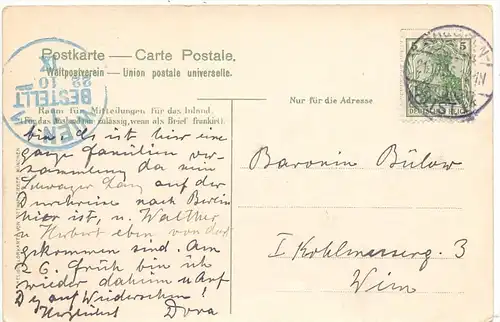 Postkarte — Carte Postale.
Weltpostverein — Union postale universelle.
Raum für Mitteilungen für das Inland.
(Für das Ausland nur zulässig, wenn als Brief frankirt)
Nur für die Adresse
5 5
22 10
BESTELLT
WIEN
bin, es ist hier eine
ganze Familien ver-
sammlung da mein
Schwager Lanz auf der
Durchreise nach Berlin
hier ist, u. Walther
u Herbert eben von dort
gekommen sind. Am
26. früh bin ich
wieder daheim u
auf Wiedersehen!
Herzlichst Dora
Baronin Bülow
I Kohlmesserg. 3
Wien